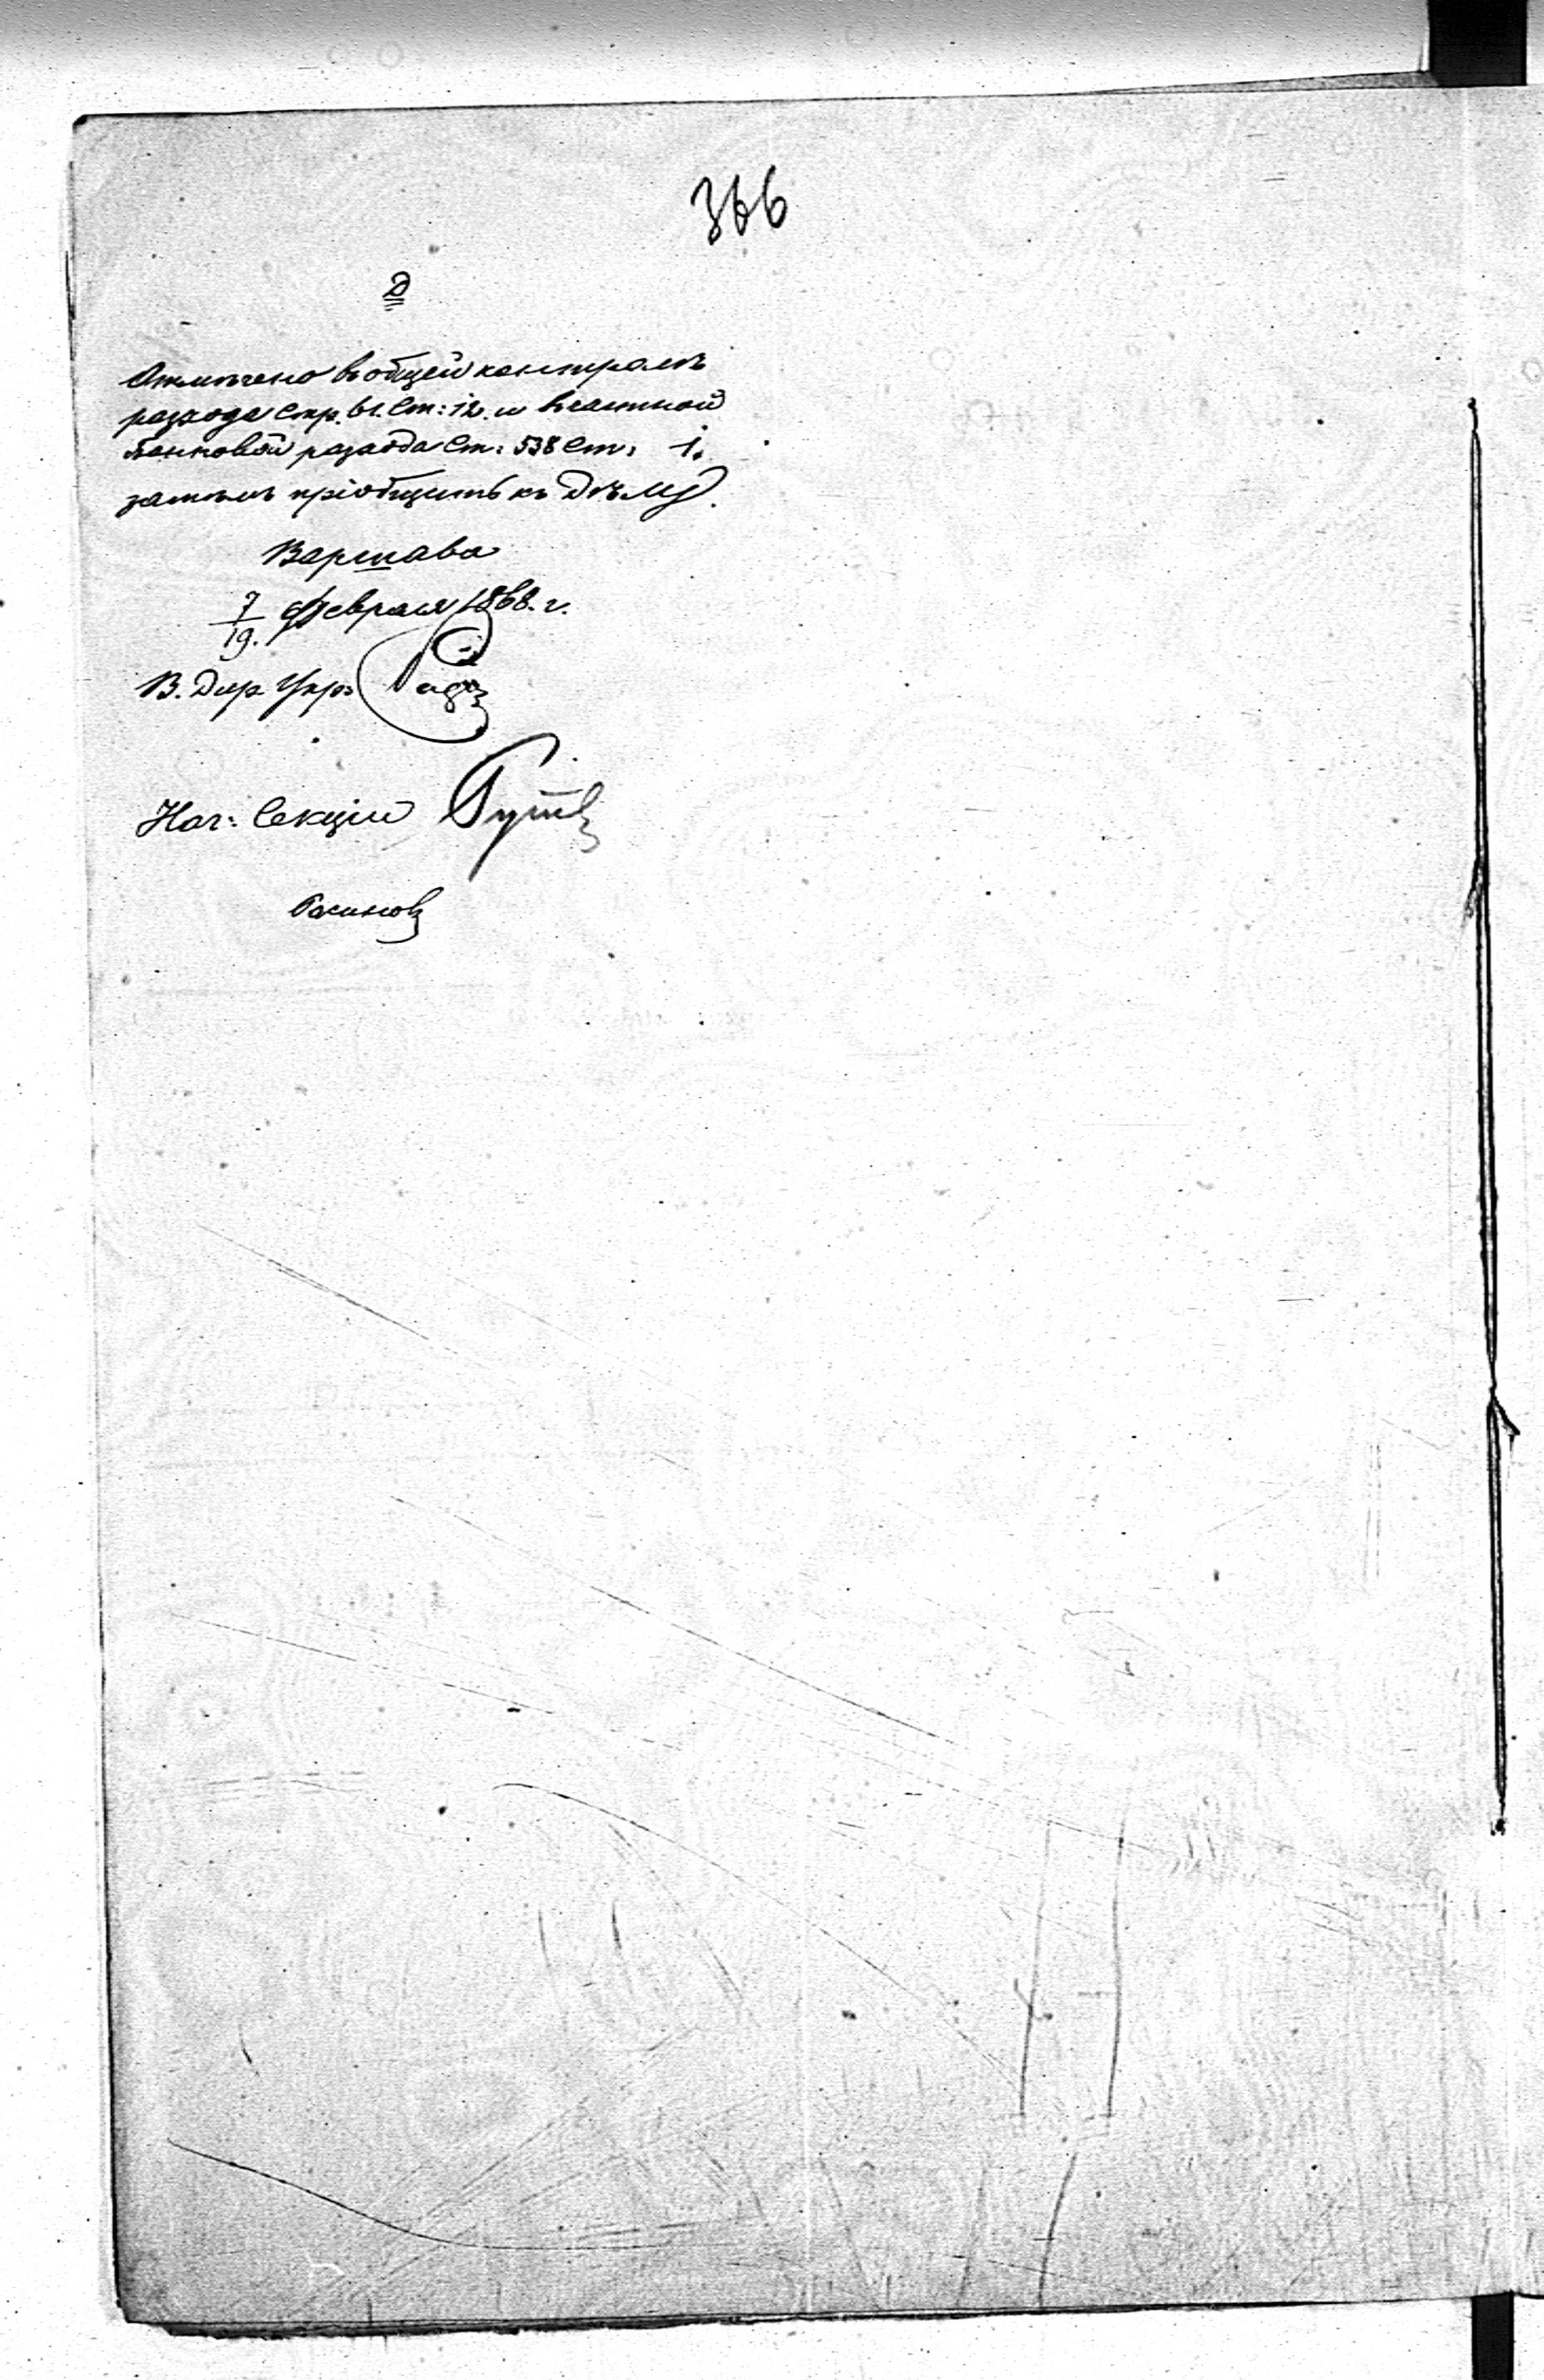 366
Д
Отмѣчено въ общей контролѣ
разхода Стр. 61. Ст: 12. и въ частной
банковой разхода Ст: 538 Ст: 1.
затѣмъ пріобщить къ Дѣлу.
Варшава
7/19. Февраля 1868. г.
В. Дир. Упр:
Нач: Секціи